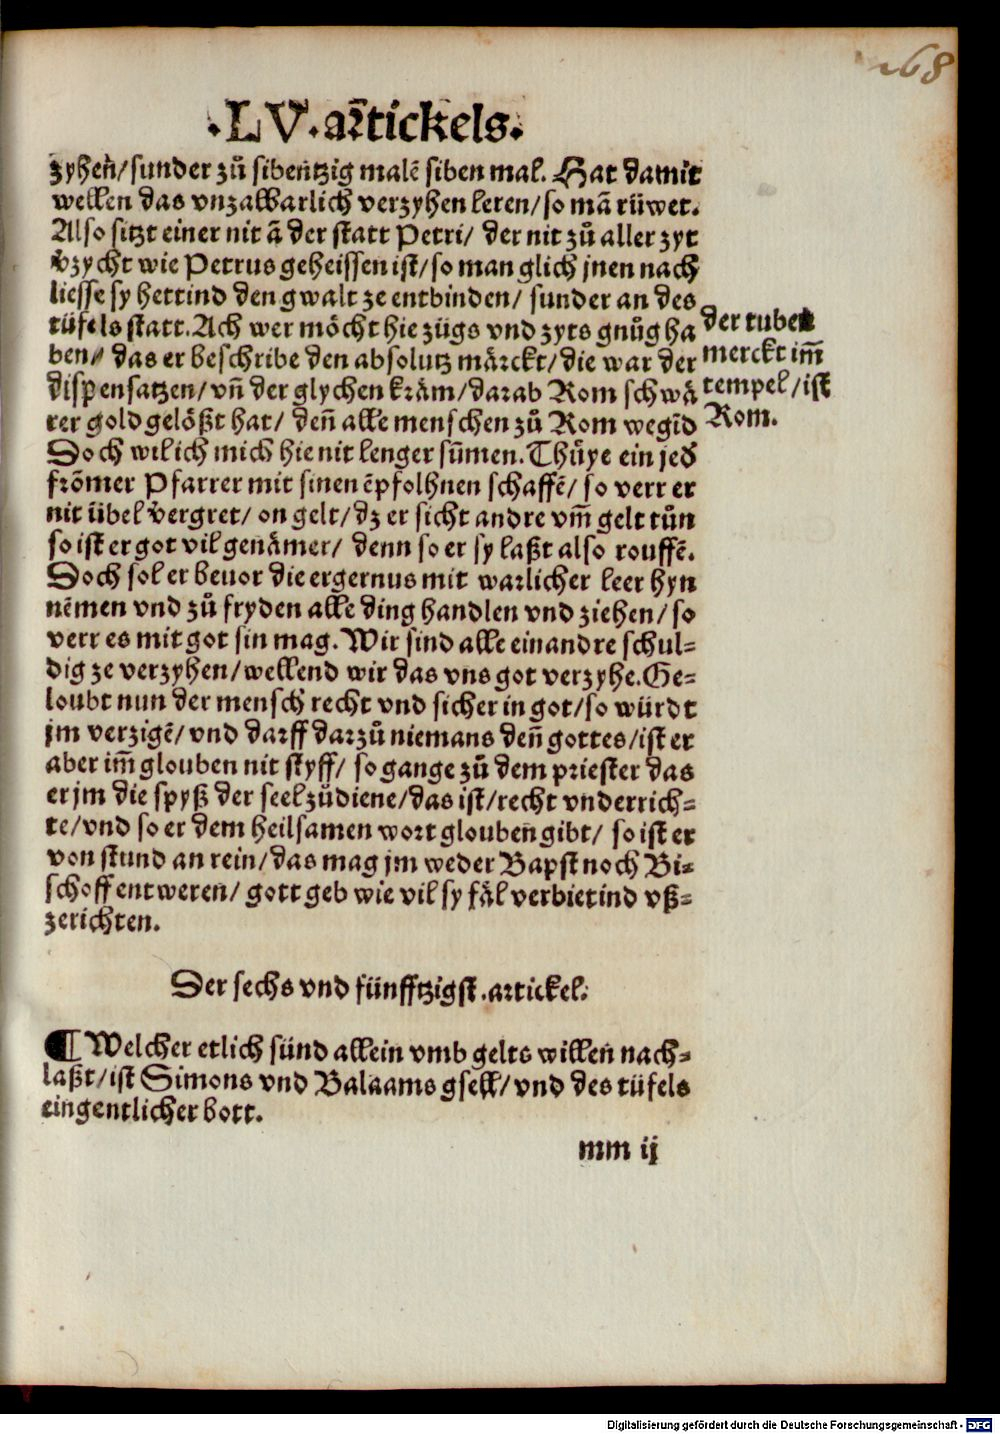 268
.LV. artickels.
zyhen̄/sunder zů sibentzig malē siben mal. Hat damit
wellen das vnzalbarlich verzyhen leren/so mā rüwet.
Also sitzt einer nit ā der statt Petri/ der nit zů aller zyt
v̄zycht wie Petrus geheissen ist/so man glich jnen nach
liesse sy hettind den gwalt ze entbinden/ sunder an des
tüfels statt. Ach wer möcht hie zügs vnd zyts gnůg ha
ben/ das er beschribe den absolutz märckt/die war der
dispensatzen/vn̄ der glychen kräm/darab Rom schwä
rer gold gelößt hat/ den̄ alle menschen zů Rom wegīd
der tuben
merckt im̄
tempel/ist
Rom.
Doch wil ich mich hie nit lenger sūmen. Thůye ein jed̄
frōmer Pfarrer mit sinen ēpfolhnen schaffē/ so verr er
nit übel v̄ergret/ on gelt/dz er sicht andre vm̄ gelt tůn
so ist er got vil genämer/ denn so er sy laßt also rouffē.
Doch sol er beuor die ergernus mit warlicher leer hyn
nēmen vnd zů fryden alle ding handlen vnd ziehen/so
verr es mit got sin mag. Wir sind alle einandre schul⸗
dig ze verzyhen/wellend wir das vns got verzyhe. Ge⸗
loubt nun der mensch recht vnd sicher in got/so würdt
jm verzigē/vnd darff darzů niemans den̄ gottes/ist er
aber im̄ glouben nit styff/ so gange zů dem priester das
er jm die spyß der seel zůdiene/das ist/recht vnderrich⸗
te/vnd so er dem heilsamen wort glouben gibt/ so ist er
von stund an rein/das mag jm weder Bapst noch Bi⸗
schoff entweren/ gott geb wie vil sy fäl verbietind vß⸗
zerichten.
Der sechs vnd fünfftzigst. artickel.
¶ Welcher etlich sünd allein vmb gelts willen nach⸗
laßt/ist Simons vnd Balaams gsell/vnd des tüfels
eingentlicher bott.
mm ij
Digitalisierung gefördert durch die Deutsche Forschungsgemeinschaft - DFG